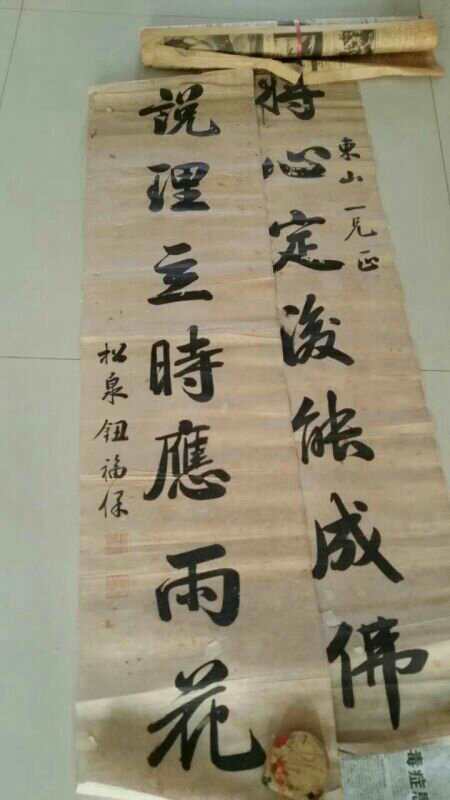 將心定後能成佛
東山一兄正
說理立時應雨花
松泉鈕福保
毒症